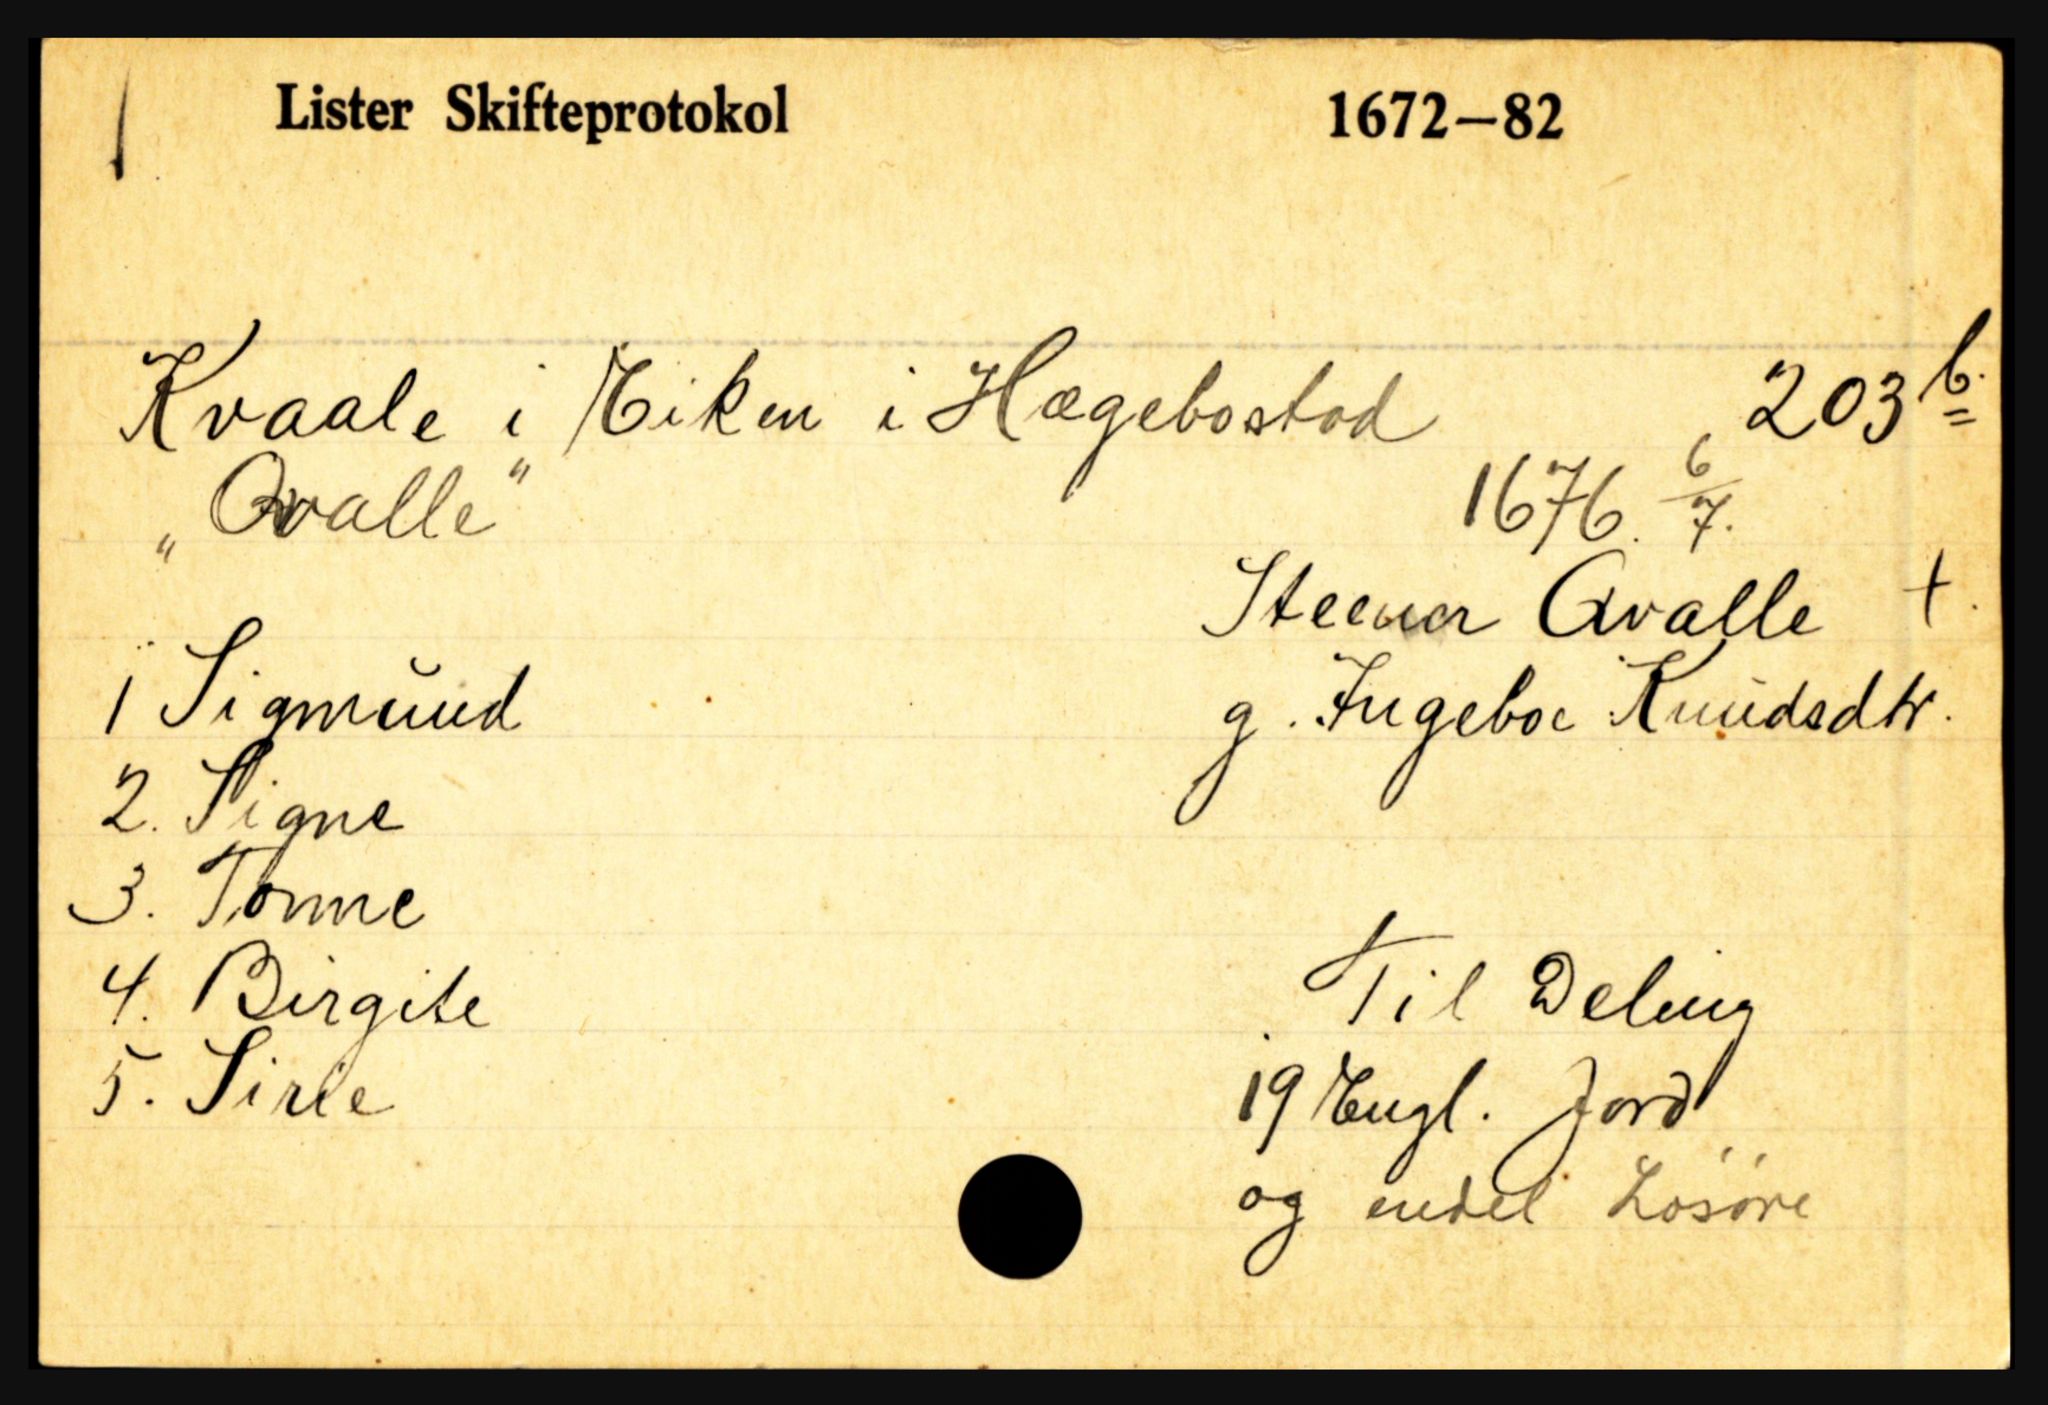 Lister Skifteprotokol 1672—82
Kvaale i Eiken i Hægebostad 203 b.
„Qvalle“
1676. 6/7.
Steenar Qvalle +.
g. Ingebor Knŭdsdtr.
1 Sigmŭnd
2. Signe
3. Tonne
4. Birgite
5. Sirie
Til Deling
19 Engl. Jord
og endel Løsøre